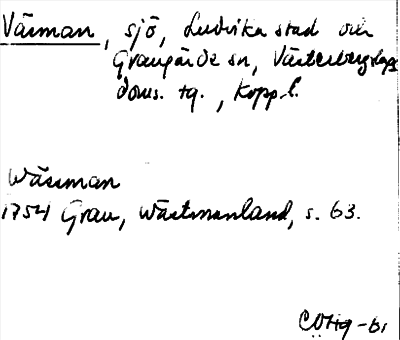 Väsman, sjö, Ludvika stad och
Grangärde sn, Västerbergslags
doms. tg., Kopp.l.
Wässman
1754 Grau, Wästmanland, s. 63.